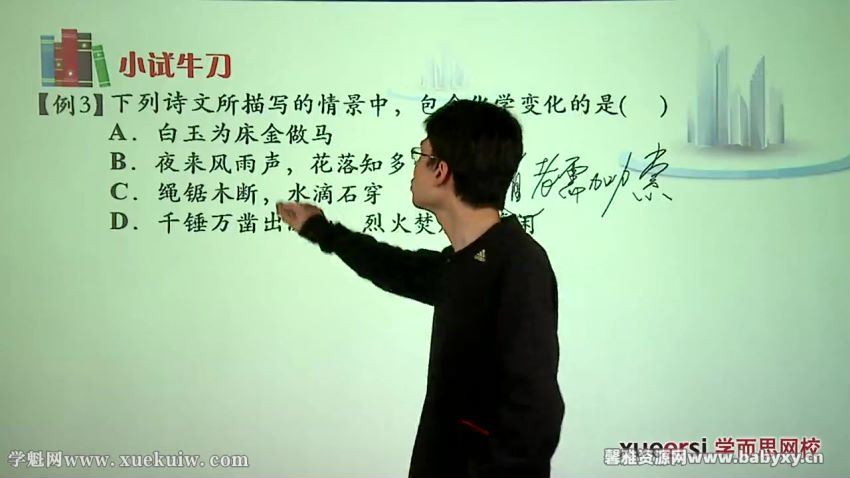 小试牛刀
【例3】下列诗文所描写的情景中，包含化学变化的是( )
A．白玉为床金做马
B．夜来风雨声，花落知多
C．绳锯木断，水滴石穿
D．千锤万凿出 烈火焚
xueersi 学而思网校
学魁网www.xuekuiw.com
馨雅资源网www.babyxy.cn